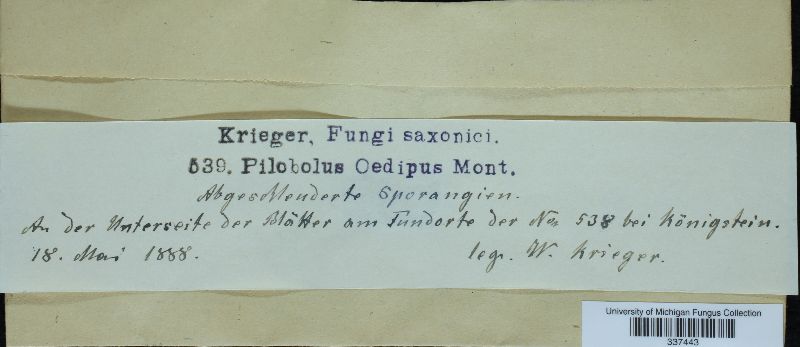 Krieger, Fungi saxonici.
539. Pilobolus Oedipus Mont.
Abgeschleuderte Sporangien.
An der Unterseite der Blätter am Fundorte der No. 538 bei Königstein.
18. Mai 1888.
leg. W. Krieger.
University of Michigan Fungus Collection
337443